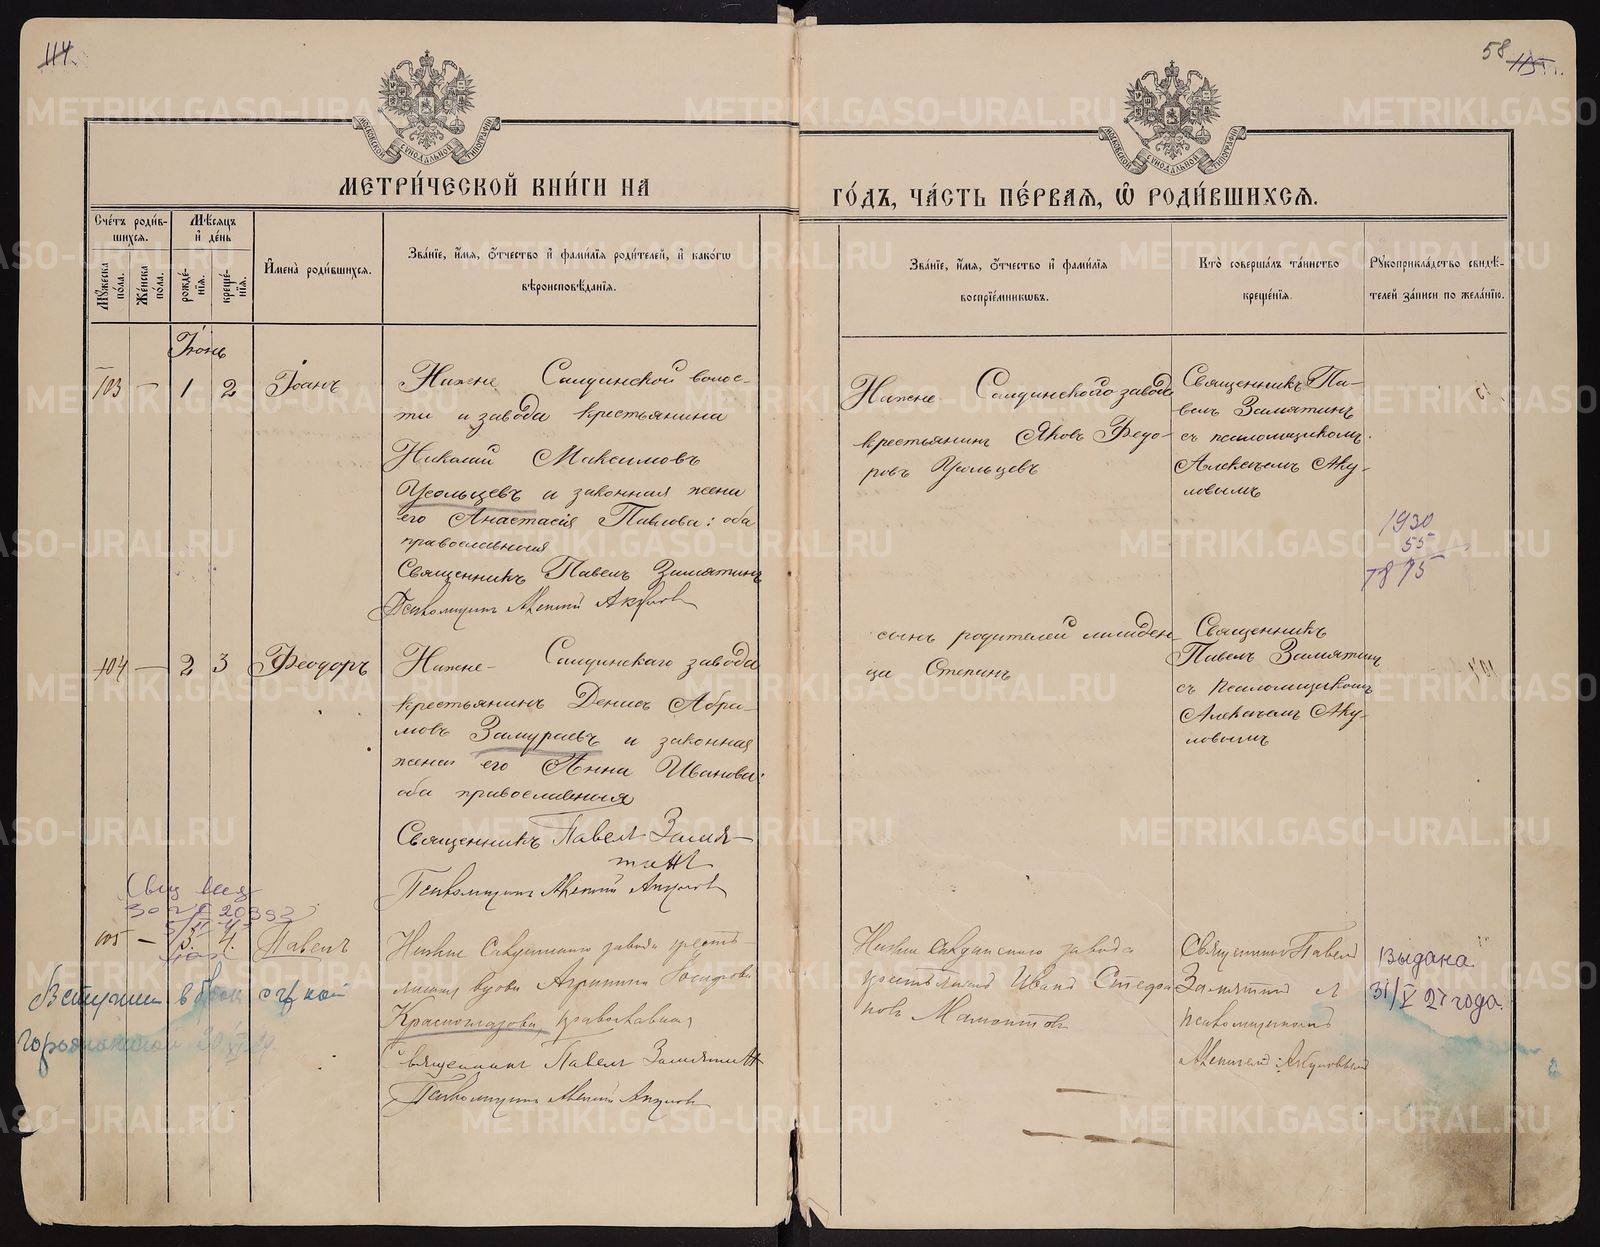 114
58
115
МОСКОВСКОЙ СУНОДАЛЬНОЙ ТИПОГРАФИИ
МОСКОВСКОЙ СУНОДАЛЬНОЙ ТИПОГРАФИИ
МЕТРИ́ЧЕСКОЙ КНИ́ГИ НА
ГО́ДЪ, ЧА́СТЬ ПЕ́РВАѦ, Ѽ РОДИ́ВШИХСѦ.
Сче́тъ роди́в-
шихсѧ.
Мѣ́сѧцъ
и҆ де́нь
Мꙋ́жеска
по́ла.
Же́нска
по́ла.
рожде́-
нїѧ.
креще́-
нїѧ.
И҆мена̀ роди́вшихсѧ.
Зва́нїе, и҆́мѧ, ѻ҆́тчество и҆ фами́лїѧ роди́телей, и҆ како́гѡ
вѣроисповѣ́данїѧ.
Зва́нїе, и҆́мѧ, ѻ҆́тчество и҆ фами́лїѧ
воспрїе́мникѡвъ.
Кто̀ соверша́лъ та́инство
креще́нїѧ.
Рꙋкоприкла́дство свидѣ́-
телей за́писи по жела́нїю.
Іюнь
103 — 1 2 Іоанъ
Нижне Салдинской волос-
ти и завода крестьянина
Николай Максимовъ
Усольцевъ и законная жена
его Анастасія Павлова: оба
православныя
Священникъ Павелъ Замятинъ
Псаломщикъ Алексій Акуловъ
Нижне Салдинского завода
крестьянин Яковъ Федо-
ровъ Усольцевъ
Священникъ Па-
велъ Замятинъ
съ псаломщикомъ
Алексѣемъ Аку-
ловымъ
1930
55
1875
104 — 2 3 Феодоръ
Нижне- Салдинскаго завода
крестьянинъ Денисъ Абра-
мовъ Замураевъ и законная
жена его Анна Иванова:
оба православныя
Священникъ Павелъ Замя-
тинъ
Псаломщикъ Алексій Акуловъ
сынъ родителей младен-
ца Степанъ
Священникъ
Павелъ Замятинъ
съ псаломщикомъ
Алексѣемъ Аку-
ловымъ
105 — 3. 4. Павелъ
Нижне Салдинского завода кресть-
янская вдова Агрипина Іосифова
Красноглазова, православная
Священникъ Павелъ Замятинъ
Псаломщикъ Алексій Акуловъ
Нижне Салдинского завода
крестьянинъ Иванъ Стефа
новъ Мамонтовъ
Священникъ Павелъ
Замятинъ и
псаломщикомъ
Алексѣемъ Акуловымъ
Выдана
31/V 27 года.
Вступили в брак с гр-кой
METRIKI.GASO-URAL.RU